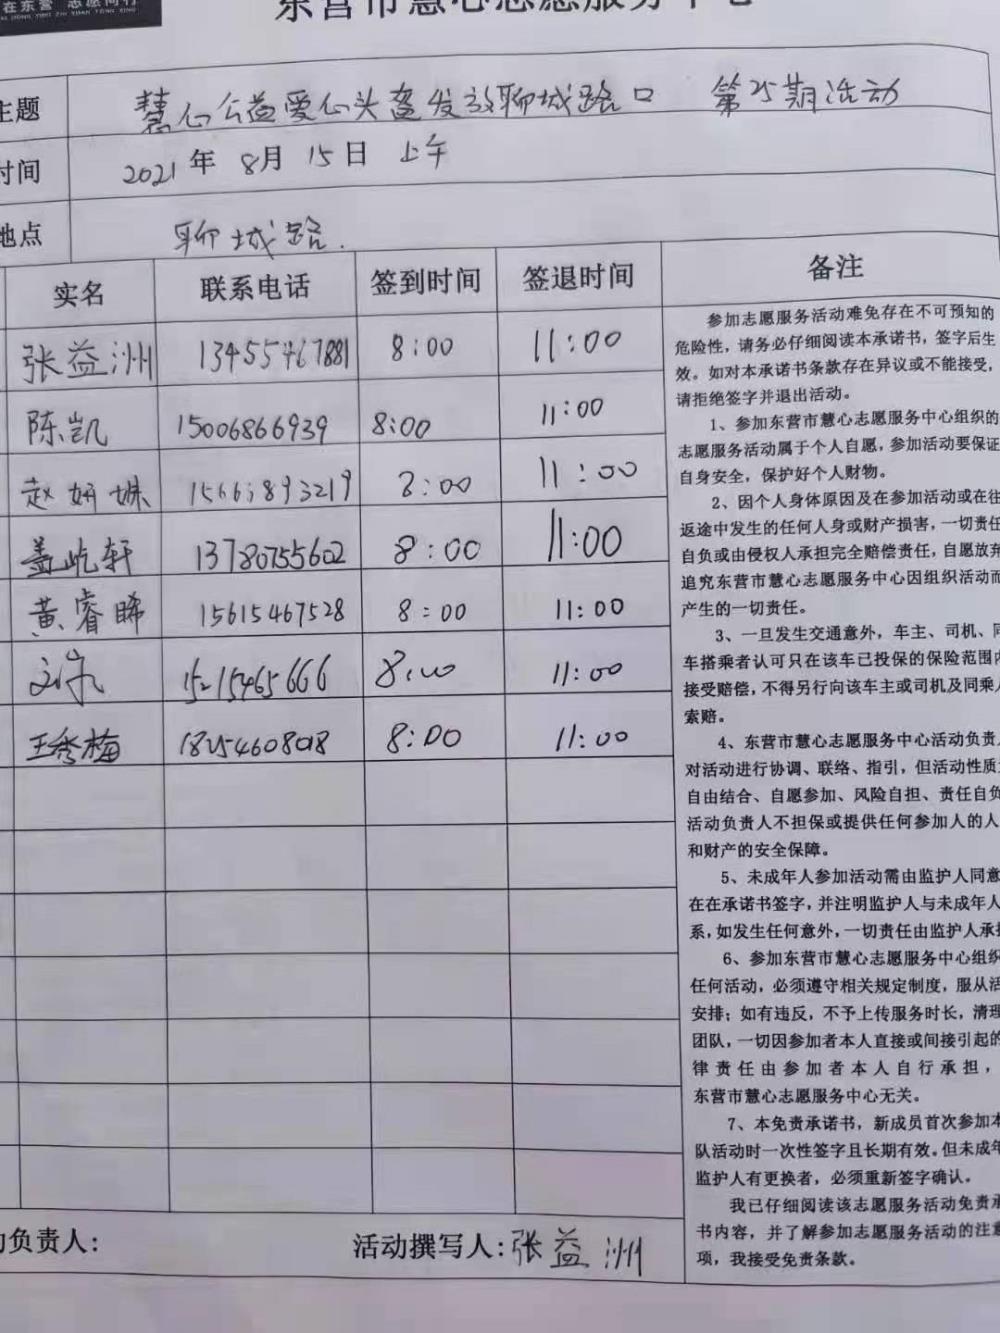 在东营 志愿同行
东营市慧心志愿服务中心
主题 慧心公益爱心头盔发放聊城路口 第25期活动
时间 2021年 8月 15日 上午
地点 聊城路.
实名 联系电话 签到时间 签退时间 备注
张益洲 13455467881 8:00 11:00
陈凯 15006866939 8:00 11:00
赵妍姝 8:00 11:00
盖屹轩 13780755602 8:00 11:00
黄睿晞 15615467528 8:00 11:00
15215465666 8:00 11:00
王秀梅 18254608018 8:00 11:00
参加志愿服务活动难免存在不可预知的
危险性，请务必仔细阅读本承诺书，签字后生
效。如对本承诺书条款存在异议或不能接受，
请拒绝签字并退出活动。
1、参加东营市慧心志愿服务中心组织的
志愿服务活动属于个人自愿，参加活动要保证
自身安全，保护好个人财物。
2、因个人身体原因及在参加活动或在往
返途中发生的任何人身或财产损害，一切责任
自负或由侵权人承担完全赔偿责任，自愿放弃
追究东营市慧心志愿服务中心因组织活动而
产生的一切责任。
3、一旦发生交通意外，车主、司机、同
车搭乘者认可只在该车已投保的保险范围内
接受赔偿，不得另行向该车主或司机及同乘人
索赔。
4、东营市慧心志愿服务中心活动负责人
对活动进行协调、联络、指引，但活动性质
自由结合、自愿参加、风险自担、责任自负
活动负责人不担保或提供任何参加人的人
和财产的安全保障。
5、未成年人参加活动需由监护人同意
在在承诺书签字，并注明监护人与未成年人
系，如发生任何意外，一切责任由监护人承担
6、参加东营市慧心志愿服务中心组织
任何活动，必须遵守相关规定制度，服从活
安排；如有违反，不予上传服务时长，清理
团队，一切因参加者本人直接或间接引起的
律责任由参加者本人自行承担，
东营市慧心志愿服务中心无关。
7、本免责承诺书，新成员首次参加本
队活动时一次性签字且长期有效。但未成年
监护人有更换者，必须重新签字确认。
我已仔细阅读该志愿服务活动免责承
书内容，并了解参加志愿服务活动的注意
项，我接受免责条款。
动负责人: 活动撰写人:张益洲